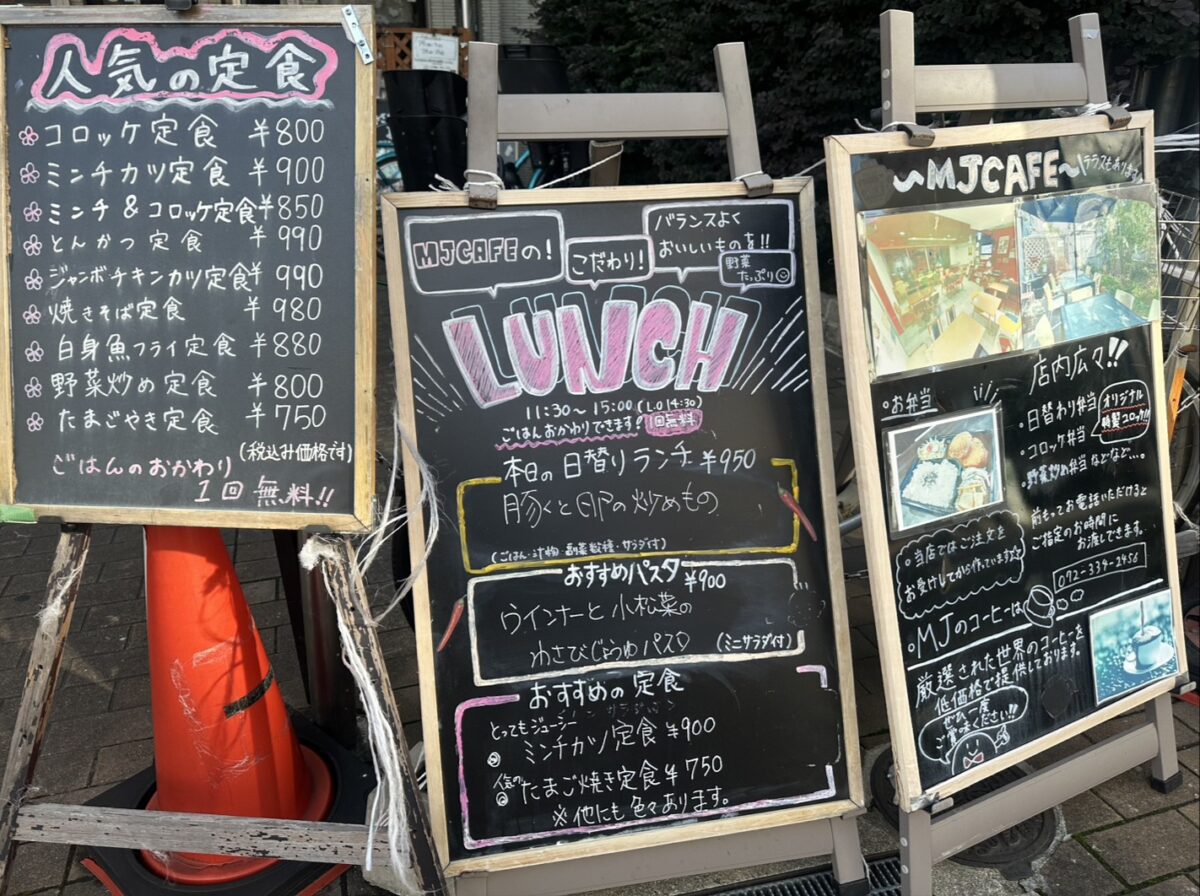 人気の定食
コロッケ定食 ¥800
ミンチカツ定食 ¥900
ミンチ&コロッケ定食¥850
とんかつ定食 ¥990
ジャンボチキンカツ定食¥990
焼きそば定食 ¥980
白身魚フライ定食 ¥880
野菜炒め定食 ¥800
たまごやき定食 ¥750
(税込み価格です)
ごはんのおかわり
1回無料!!
MJCAFEの!
こだわり!
バランスよく
おいしいものを!!
野菜
たっぷり
LUNCH
11:30~15:00(L.O 14:30)
ごはんおかわりできます! 1回無料
本日の日替りランチ ¥950
豚肉と卵の炒めもの
(ごはん・汁物・副菜数種・サラダ付)
おすすめパスタ ¥900
ウインナーと小松菜の
わさびじょうゆパスタ (ミニサラダ付)
おすすめの定食
とってもジューシー
ミンチカツ定食 ¥900
人気の
たまご焼き定食 ¥750
※他にも色々あります。
~MJCAFE~
テラスもあります
店内広々!!
・お弁当
・日替わり弁当
・コロッケ弁当
オリジナル
特製コロッケ!!
・野菜炒め弁当などなど...
前もってお電話いただけると
ご指定のお時間に
お渡しできます。
072-334-2456
・当店ではご注文を
お受けしてから作っています
・MJのコーヒーは
厳選された世界のコーヒーを
低価格で提供しております。
ぜひ一度
ご賞味ください!!